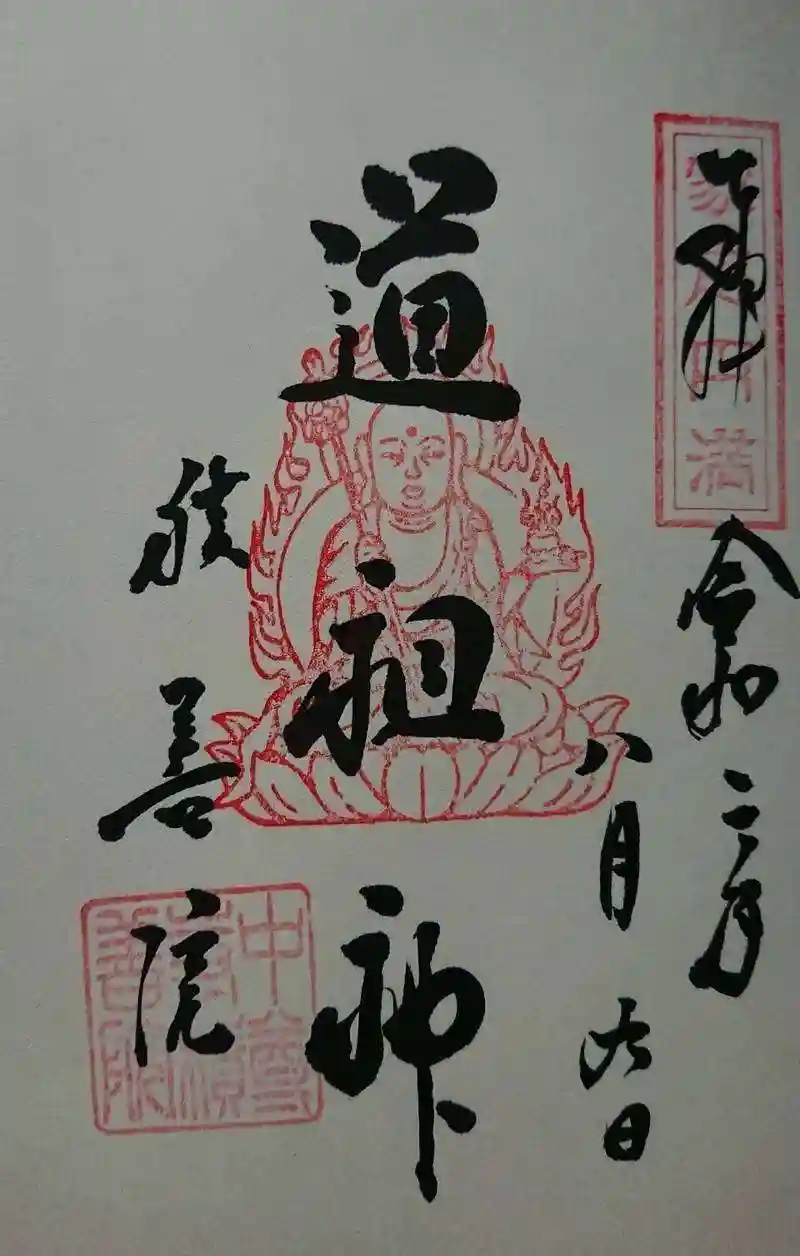 奉拝
令和二年
八月六日
道祖神
積善院
中尊
寺積
善院